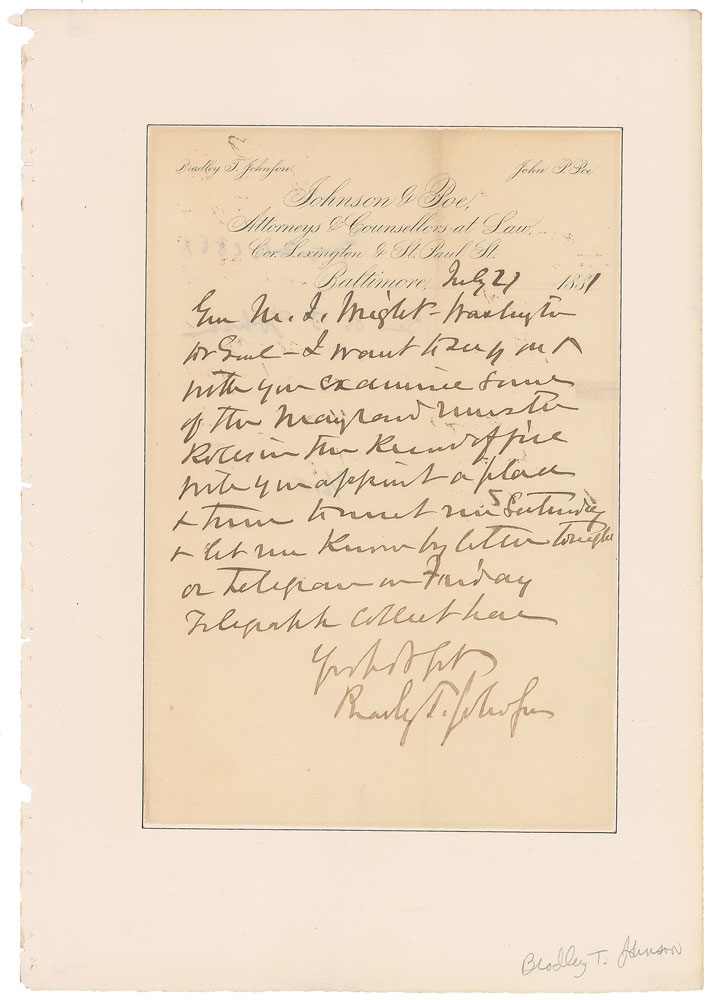 Bradley T. Johnson. John P. Poe
Johnson & Poe,
Attorneys & Counsellors at Law,
Cor. Lexington & St. Paul St.
Baltimore, July 27 1881
Gen M. J. Wright - Washington
Dr Genl - I want to
with you examine some
of the Maryland muster
Rolls in the Record office
will you appoint a place
& time to meet me Saturday
& let me know by letter tonight
or Telegram on Friday
Telegraph Collect here
Bradley T. Johnson
Bradley T. Johnson